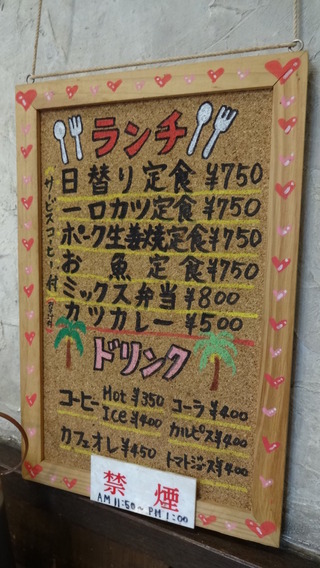 ランチ
日替り定食 ¥750
一口カツ定食 ¥750
ポーク生姜焼定食 ¥750
お魚定食 ¥750
ミックス弁当 ¥800
カツカレー ¥500
サービスコーヒー付
ドリンク
コーヒー Hot ¥350
Ice ¥400
カフェオレ ¥450
コーラ ¥400
カルピス ¥400
トマトジュース ¥400
禁煙
AM 11:50～PM 1:00